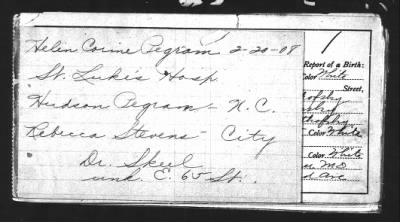 Helen Corine Pegram 2-20-08
St. Luke's Hosp
Hudson Pegram - N.C.
Rebecca Stevens - City
Dr. Skeel
unk. E. 65 St.
1
Report of a Birth:
Color White
Street,
Color White
Color White
M.D.
Ave